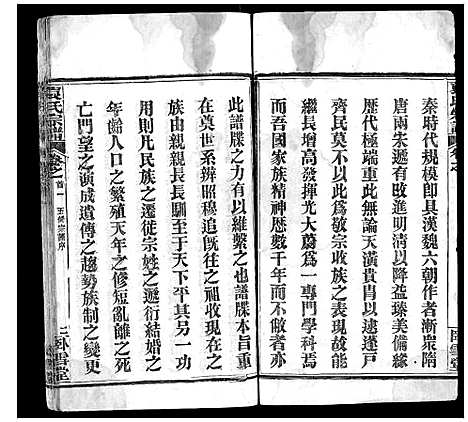 秦時代規模卽具漢魏六朝作者漸衆隋
唐兩宋遞有改進明淸以降益臻美備緣
歷代極端重此無論天潢貴胄以逮逢戶
齊民莫不以此爲敬宗收族之表現故能
繼長增高發揮光大蔚爲一專門學科焉
而吾國家族精神歷數千年而不敝者亦
此譜牒之力有以維繫之也譜牒本旨重
在奠世系辨昭穆追旣往之祖收現在之
族由親親長長馴至于天下平其另一功
用則凡民族之遷徙宗姓之遞衍結婚之
年齡人口之繁殖天年之修短亂離之死
亡門望之演成遺傳之趨勢族制之變更
袁氏宗譜
卷之首一
三
臥雪堂